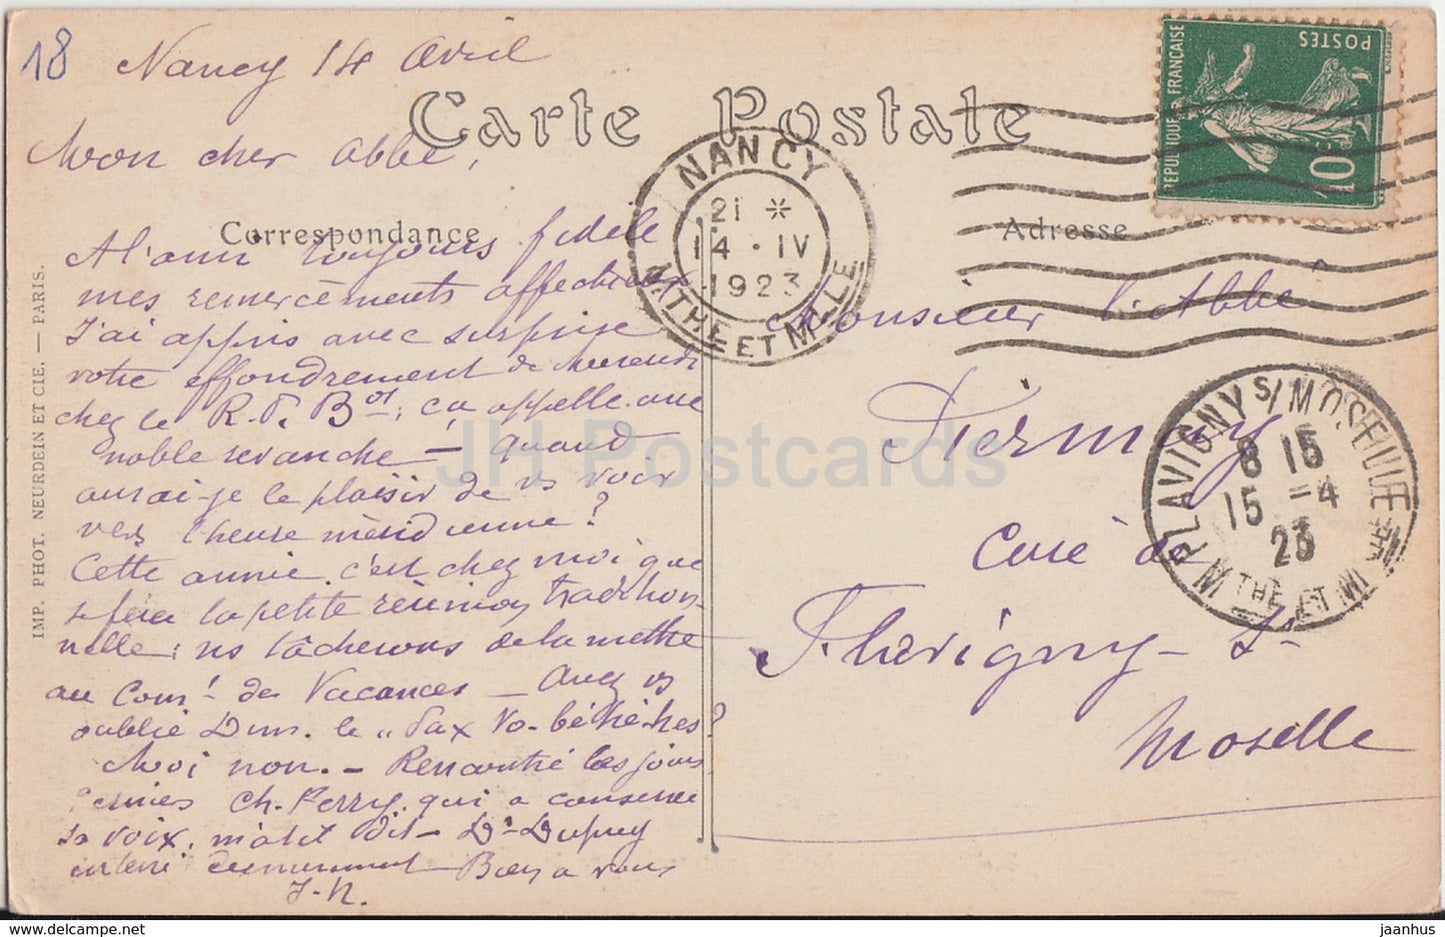 18
Nancy 14 Avril
Carte Postale
Mon cher Abbé,
Correspondance
A l'ami toujours fidèle
mes remerciements affectueux
J'ai appris avec surprise
votre effondrement de mercredi
chez le R. P. Bos; ça appelle une
noble revanche — Quand
aurai-je le plaisir de vs voir
vers l'heure méridienne?
Cette année c'est chez moi que
se fera la petite réunion tradition-
nelle; ns tâcherons de la mettre
au Comt de Vacances — Avez vs
oublié le "Pax Vo-
Moi non. — Rencontré les jours
derniers Ch. Perry, qui a conservé
sa voix, m'a-t-il dit — Dr Dupuy
Bien à vous
J-N.
IMP. PHOT. NEURDEIN ET CIE. — PARIS.
NANCY
21 *
14 · IV
1923
MTHE ET MLLE
REPUBLIQUE FRANÇAISE
POSTES
10c
Adresse
Monsieur l'Abbé
Curé de
Flavigny-s.-
Moselle
FLAVIGNY S/MOSELLE
8 15
15 -4
23
MTHE ET M
JH Postcards
jaanhus